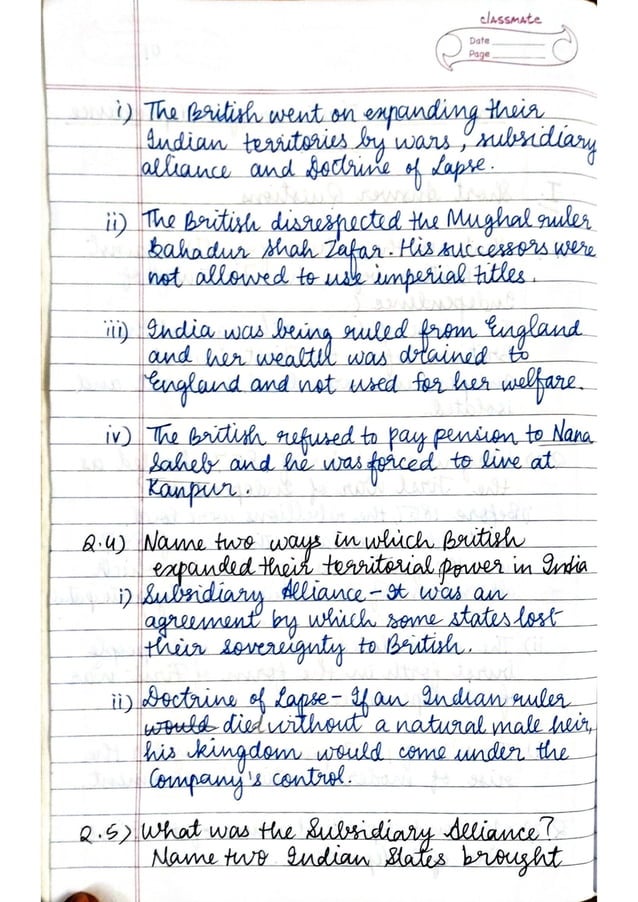 classmate
Date
Page
i) The British went on expanding their
Indian territories by wars, subsidiary
alliance and Doctrine of Lapse.
ii) The British disrespected the Mughal ruler
Bahadur Shah Zafar. His successors were
not allowed to use imperial titles.
iii) India was being ruled from England
and her wealth was drained to
England and not used for her welfare.
iv) The British refused to pay pension to Nana
Saheb and he was forced to live at
Kanpur.
Q.4) Name two ways in which British
expanded their territorial power in India
i) Subsidiary Alliance - It was an
agreement by which some states lost
their sovereignty to British.
ii) Doctrine of Lapse - If an Indian ruler
would died without a natural male heir,
his kingdom would come under the
Company's control.
Q.5) What was the Subsidiary Alliance?
Name two Indian States brought